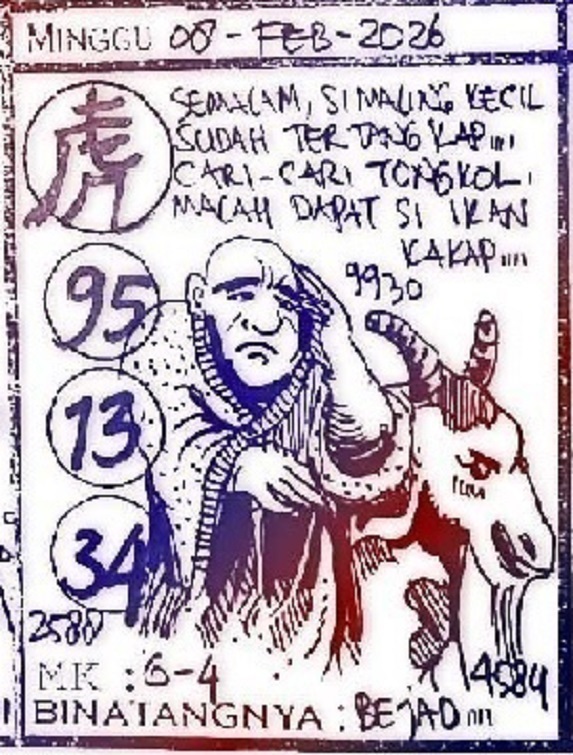 MINGGU 08 - FEB - 2026
虎
SEMALAM, SI MALING KECIL
SUDAH TERTANGKAP....
CARI-CARI TONGKOL,
MALAH DAPAT SI IKAN
KAKAP....
9930
95
13
34
2588
MK : 6-4
4584
BINATANGNYA : BEJAD...